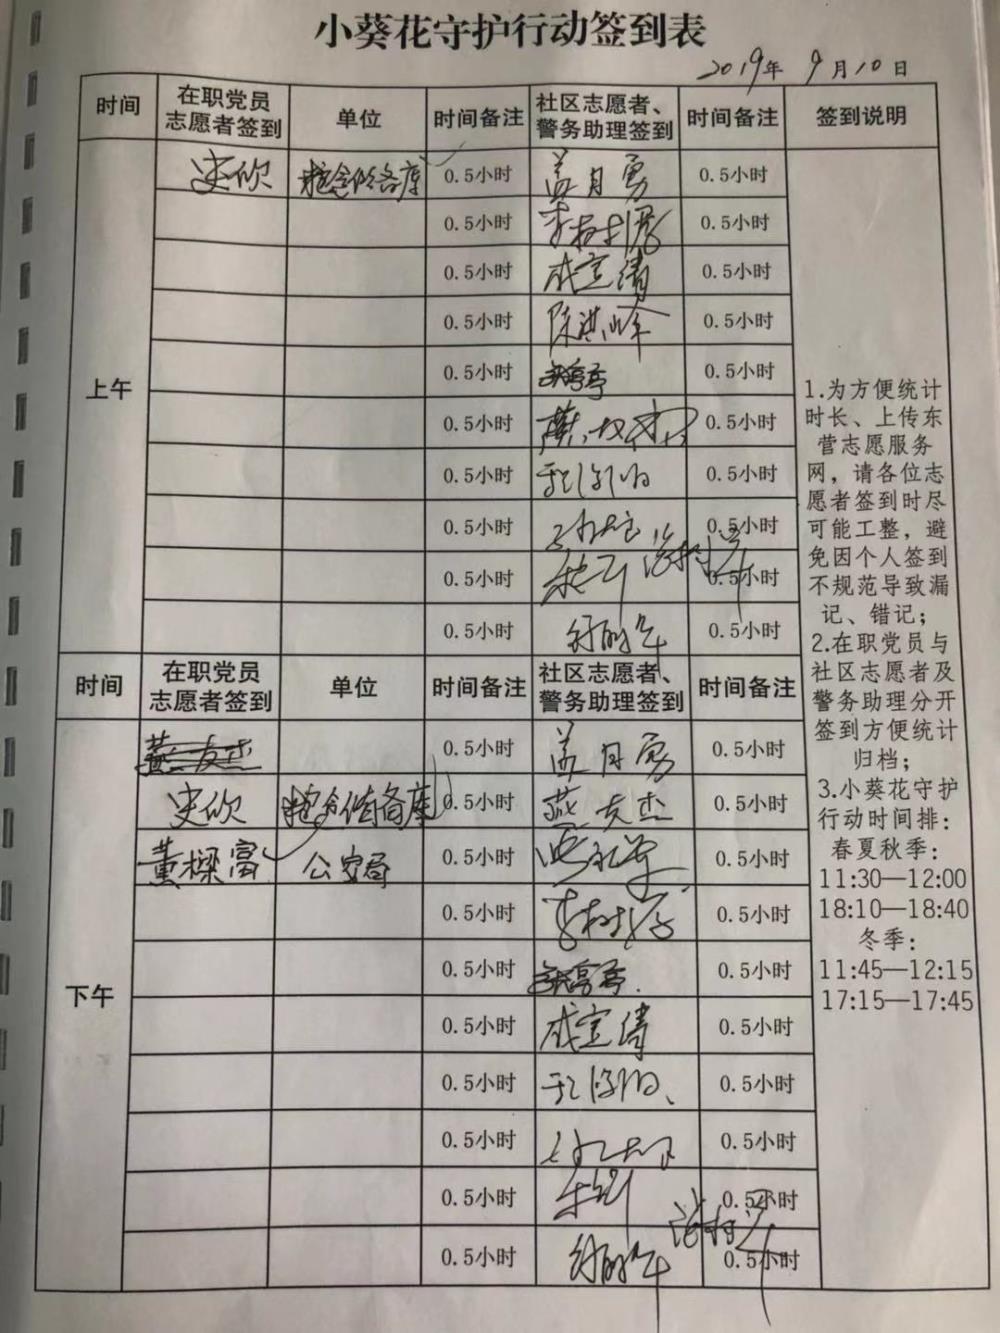 小葵花守护行动签到表
2019年 9月10日
时间 在职党员志愿者签到 单位 时间备注 社区志愿者、警务助理签到 时间备注 签到说明
上午
史欣 粮食储备库 0.5小时 盖月勇 0.5小时
0.5小时 0.5小时
0.5小时 成宝倩 0.5小时
0.5小时 陈洪峰 0.5小时
0.5小时 0.5小时
0.5小时 0.5小时
0.5小时 0.5小时
0.5小时 0.5小时
0.5小时 0.5小时
0.5小时 0.5小时
时间 在职党员志愿者签到 单位 时间备注 社区志愿者、警务助理签到 时间备注
下午
0.5小时 盖月勇 0.5小时
史欣 粮食储备库 0.5小时 燕友杰 0.5小时
黄樑富 公安局 0.5小时 0.5小时
0.5小时 0.5小时
0.5小时 0.5小时
0.5小时 成宝倩 0.5小时
0.5小时 0.5小时
0.5小时 0.5小时
0.5小时 0.5小时
0.5小时 0.5小时
1.为方便统计
时长、上传东
营志愿服务
网，请各位志
愿者签到时尽
可能工整，避
免因个人签到
不规范导致漏
记、错记；
2.在职党员与
社区志愿者及
警务助理分开
签到方便统计
归档；
3.小葵花守护
行动时间排：
春夏秋季：
11:30—12:00
18:10—18:40
冬季：
11:45—12:15
17:15—17:45